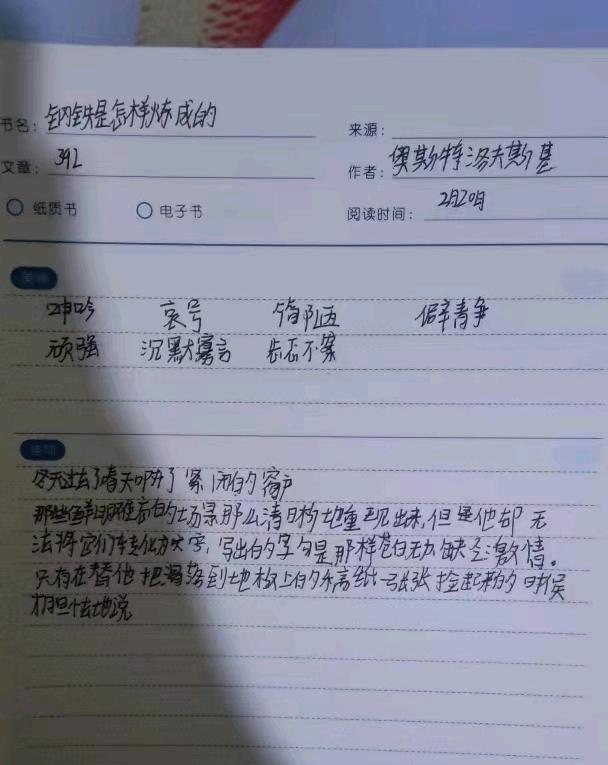 书名: 钢铁是怎样炼成的
来源:
文章: 392
作者: 奥斯特洛夫斯基
纸质书 电子书
阅读时间: 2月20日
美词
呻吟 哀号 简陋 僻静
顽强 沉默寡言
佳句
冬天过去了春天叩开了紧闭的窗户
那些鲜明难忘的场景那么清晰地重现出来,但是他却无
法将它们转化为文字,写出的字句是那样苍白无力缺乏激情。
只有在替他把滑落到地板上的稿纸一张张捡起来的时候
才胆怯地说